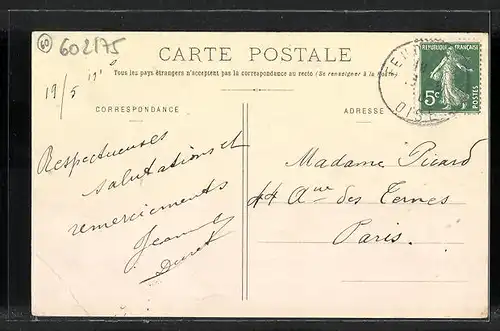 60
602175
CARTE POSTALE
Tous les pays étrangers n'acceptent pas la correspondance au recto (Se renseigner à la Poste)
19/5
CORRESPONDANCE
ADRESSE
REPUBLIQUE FRANÇAISE
5c
POSTES
OISE
Respectueuses
salutations et
remerciements
Jeanne
Madame Picard
44 Aue des Ternes
Paris.